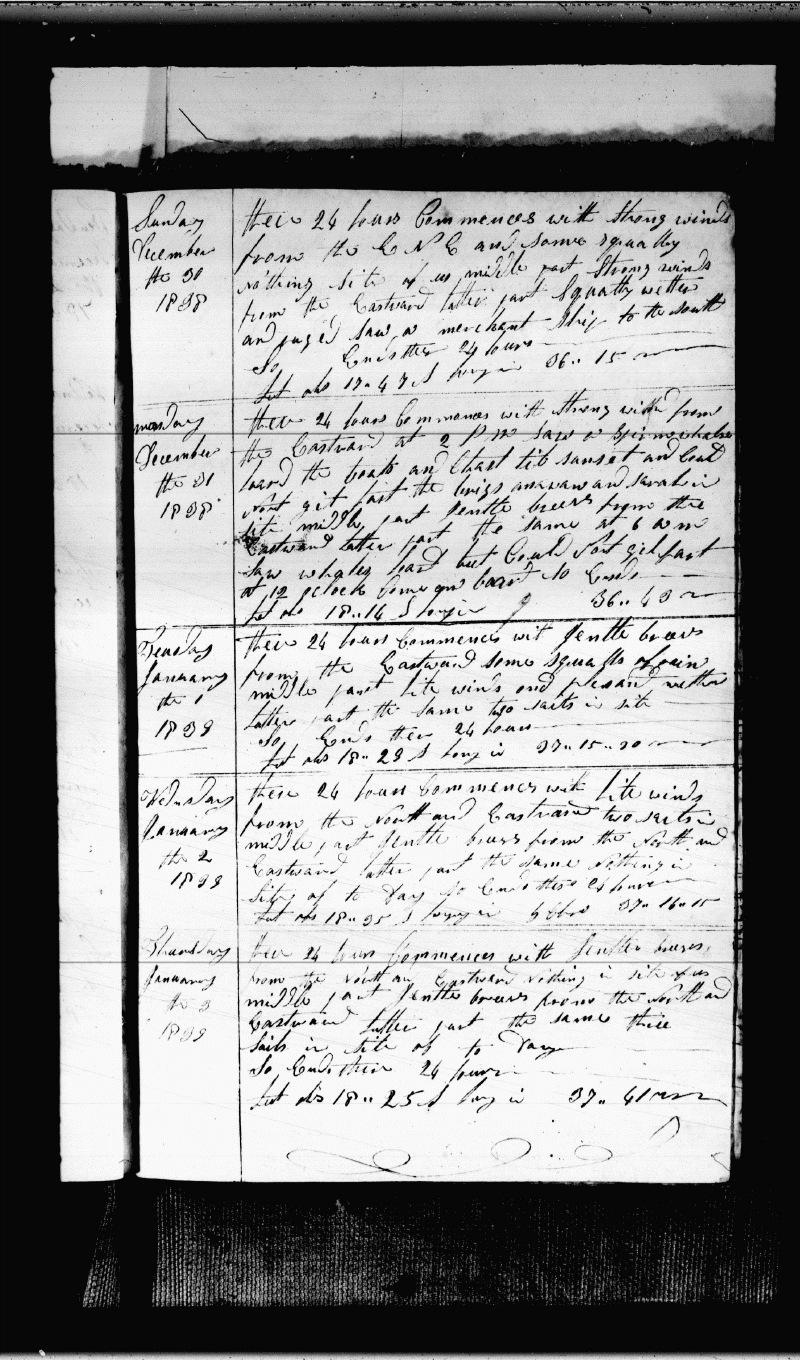 Sunday
December
the 30
1838
theis 24 hours Commences with strong winds
from the E N E and some squally
nothing site of us middle part strong winds
from the Eastward latter part squally wether
and ruged saw a merchant ship to the south
So Ends ther 24 hours
Lat obs 17.. 47 S long in 36.. 15
monday
December
the 31
1838
theis 24 hours Commences with strong wind from
the Eastward at 2 P M saw a
loard the boats and Chast til sunset an Coud
Not git fast the brigs and sarah in
site middle part gentle breezes from the
Eastward latter part the same at 6 a m
saw whales loard but Could Not git fast
at 12 oclock Come on board So Ends
Lat obs 18.. 14 S longin 36.. 43
Tuesday
January
the 1
1839
theis 24 hours Commences wit gentle breezes
from the Eastward some squalls of rain
middle part lite winds and plesand wether
latter part the same two sails in site
So Ends theis 24 hours
Lat obs 18.. 29 S long in 37.. 15.. 30
Wednsday
January
the 2
1839
theis 24 hours Commences with lite winds
from the North and Eastward two sails in
middle part gentle breezes from the North and
Eastward latter part the same Nothing in
Site of to Day So Ends theis 24 hours
Lat obs 18.. 35 S longin 37.. 16.. 15
Thursday
January
the 3
1839
theis 24 hours Commences with gentle breezes
from the North an Eastward Nothing in site of us
middle part gentle breezes from the North and
Eastward latter part the same three
Sails in site of to Day
So Ends theis 24 hours
Lat obs 18.. 25 S long in 37.. 41